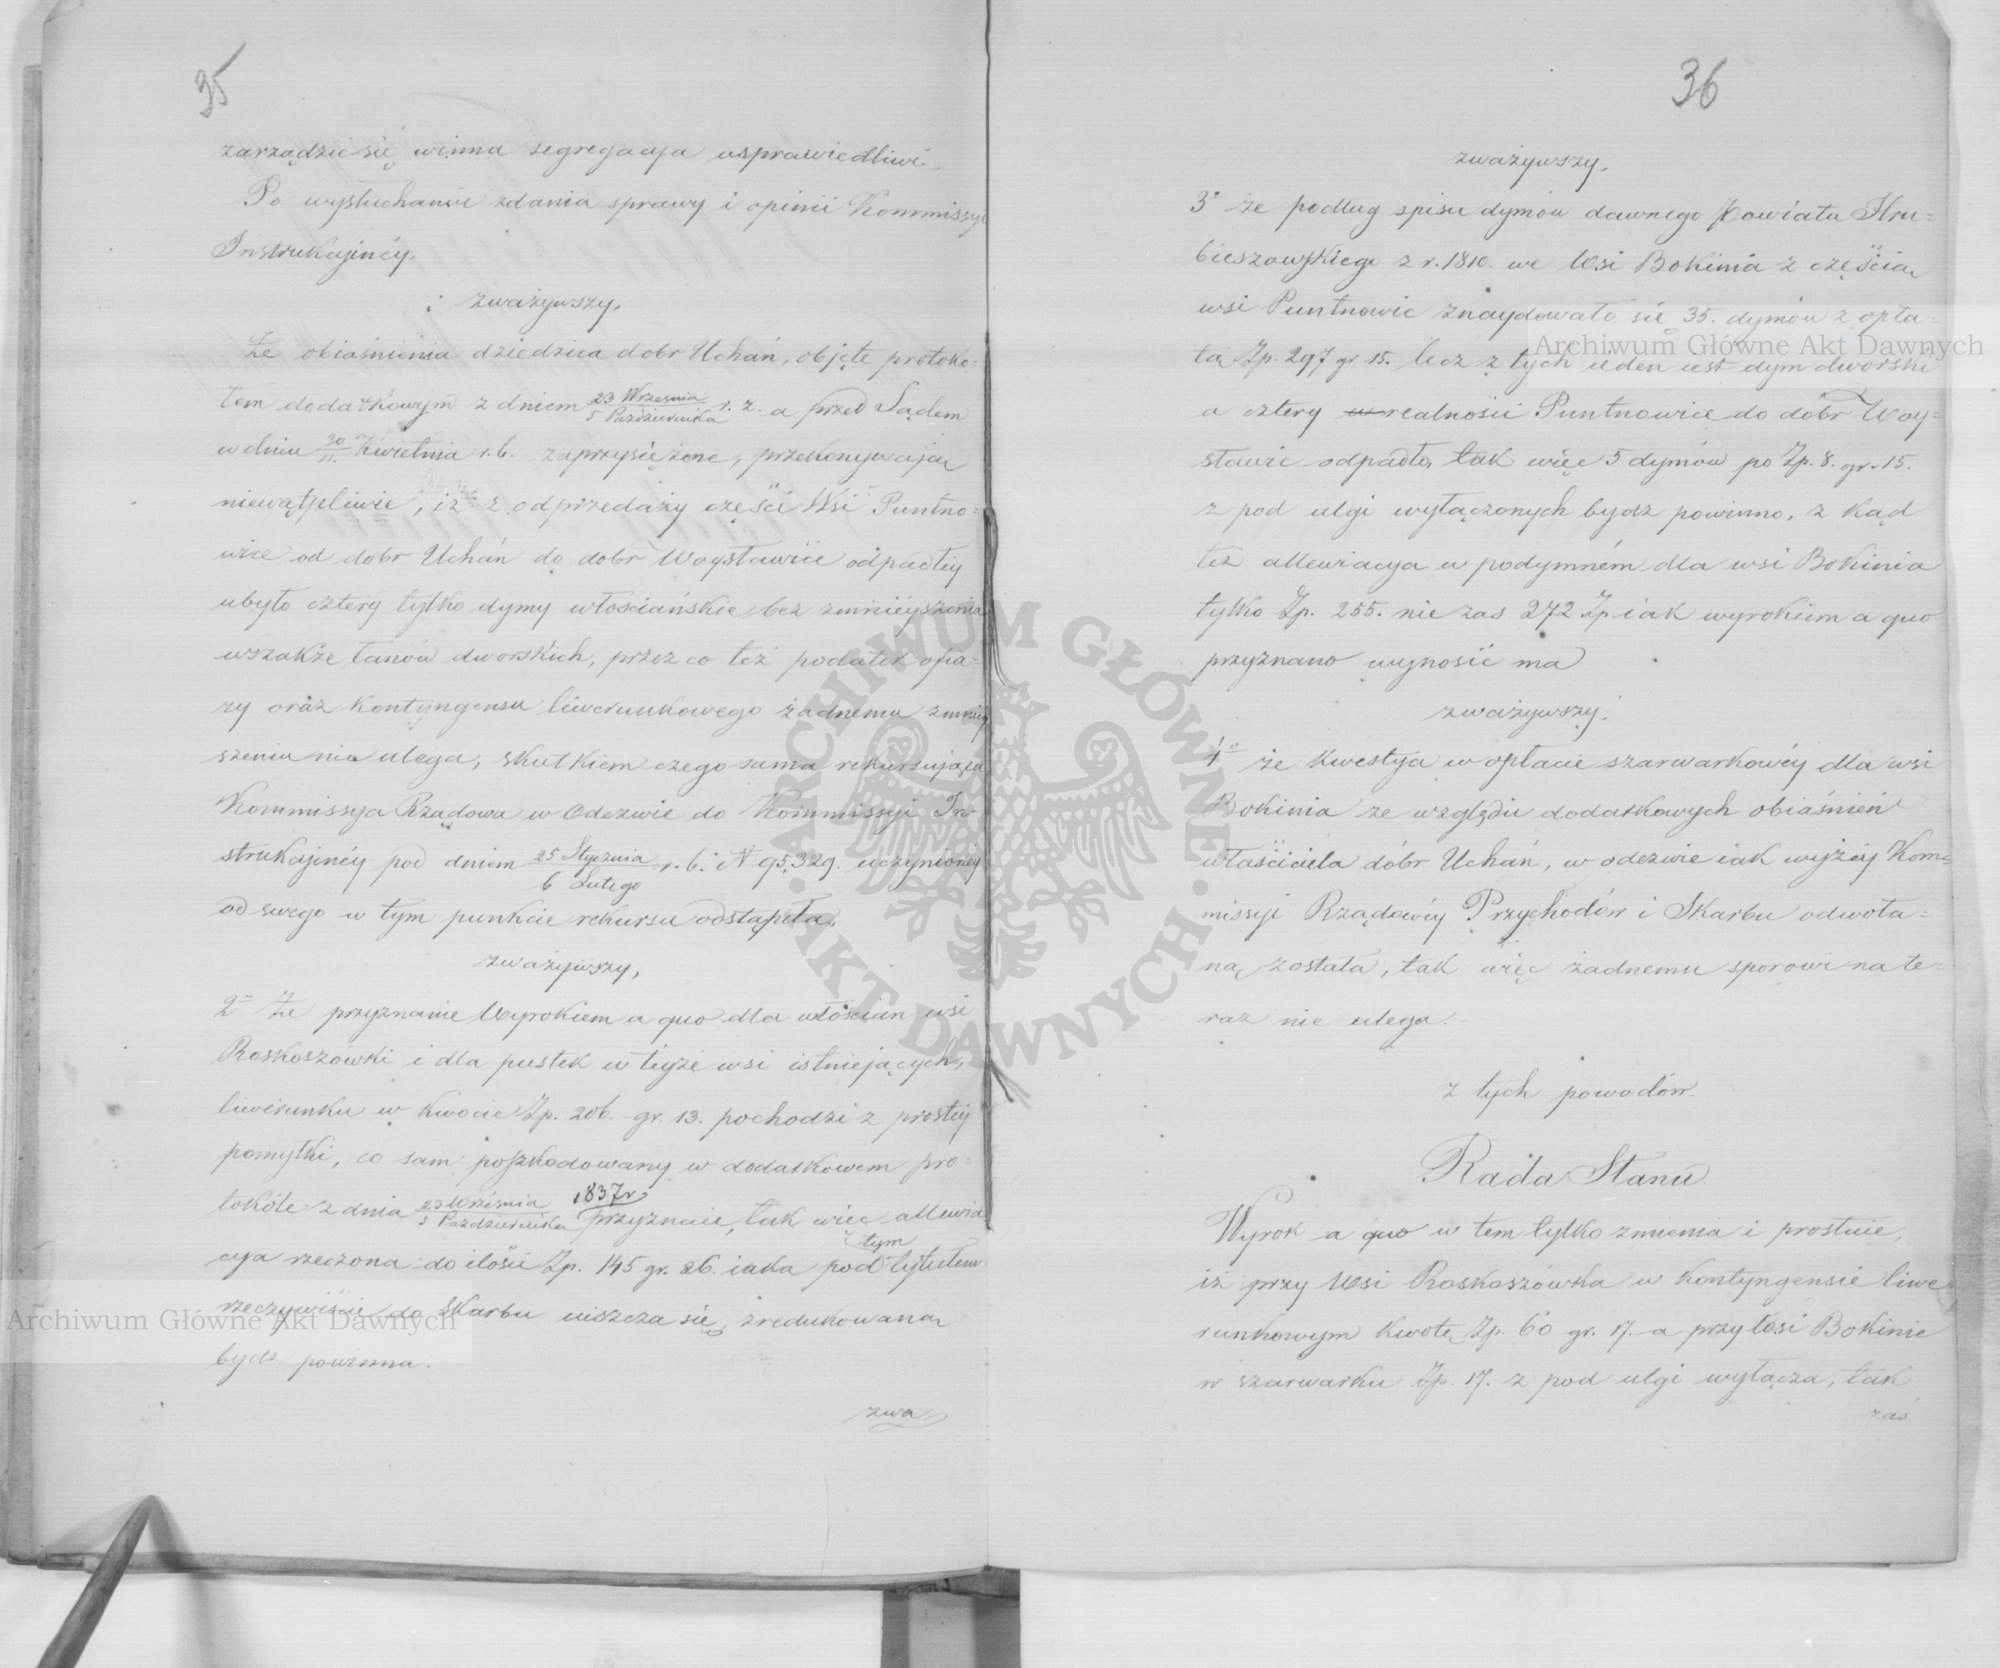 35
zarządzić się winna segregacya usprawiedliwi.
Po wysłuchaniu zdania sprawy i opinii Kommissyi
Instrukcyjnéy,
i zważywszy,
że obiaśnienia dziedzica dobr Uchań, objęte protoko-
łem dodatkowym z dniem 23 Września / 5 Października r. z. a przed Sądem
w dniu 30/11. Kwietnia r. b. zaprzysiężone, przekonywaią
niewątpliwie, iż z odprzedaży części Wsi Puntno-
wice od dobr Uchań do dobr Woysławice odpadłey
ubyło cztery tylko dymy włościańskie bez zmnieyszenia
wszakże łanów dworskich, przez co też podatek ofia-
ry oraz kontyngensu liwerunkowego żadnemu zmniey
szeniu nie ulega, skutkiem czego sama rekursująca
Kommissya Rządowa w Odezwie do Kommissyi In-
strukcyjnéy pod dniem 25 Stycznia / 6 Lutego r. b. N 95,329. uczynionéy
od swego w tym punkcie rekursu odstąpiła,
zważywszy,
2° że przyznanie Wyrokiem a quo dla włościan wsi
Roskoszówki i dla pustek w teyże wsi istniejących,
liwerunku w kwocie Zp. 206. gr. 13. pochodzi z prostéy
pomyłki, co sam poszkodowany w dodatkowem pro-
tokóle z dnia 23 Września / 5 Października 1837 r. przyznaie, tak więc allewia
cya rzeczona do ilości Zp. 145 gr. 26. iaka pod tym tytułem
rzeczywiście do Skarbu uiszcza się, zredukowaną
bydź powinna.
zwa
36
zważywszy,
3° że podług spisu dymów dawnego Powiatu Hru-
bieszowskiego z r. 1810. we Wsi Bokinia z częścią
wsi Puntnowic znaydowało się 35. dymów z opła-
tą Zp. 297 gr 15. lecz z tych ieden iest dym dworski
a cztery w realności Puntnowice do dóbr Woy-
sławic odpadło, tak więc 5 dymów po Zp. 8. gr. 15.
z pod ulgi wyłączonych bydź powinno, z kąd
też allewiacya w podymném dla wsi Bokinia
tylko Zp. 255. nie zas 272 Zp iak wyrokiem a quo
przyznano wynosić ma
zważywszy,
4° że kwestya w opłacie szarwarkowéy dla wsi
Bokinia ze względu dodatkowych obiaśnień
właściciela dóbr Uchań, w odezwie iak wyżéy Kom-
missyi Rządowéy Przychodów i Skarbu odwoła-
ną została, tak więc żadnemu sporowi na te-
raz nie ulega.
z tych powodów.
Rada Stanu
Wyrok a quo w tem tylko zmienia i prostuie,
iż przy Wsi Roskoszówka w kontyngensie liwe
runkowym kwotę Zp. 60 gr. 17. a przy Wsi Bokinie
w szarwarku Zp. 17. z pod ulgi wyłącza, tak
zaś
Archiwum Główne Akt Dawnych
Archiwum Główne Akt Dawnych
ARCHIWUM GŁÓWNE
AKT DAWNYCH